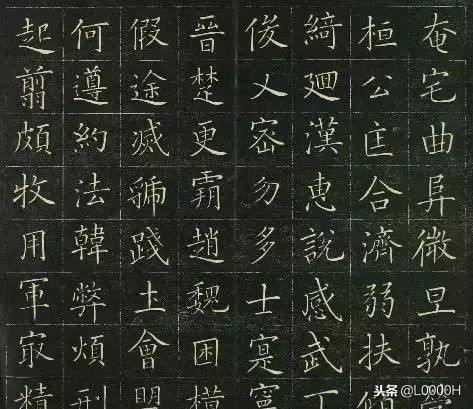 奄宅曲阜微旦孰
桓公匡合濟弱扶傾
綺廻漢惠說感武丁
俊乂密勿多士寔寧
晉楚更霸趙魏困橫
假途滅虢踐土會盟
何遵約法韓弊煩刑
起翦頗牧用軍冣精
头条 @L0000H